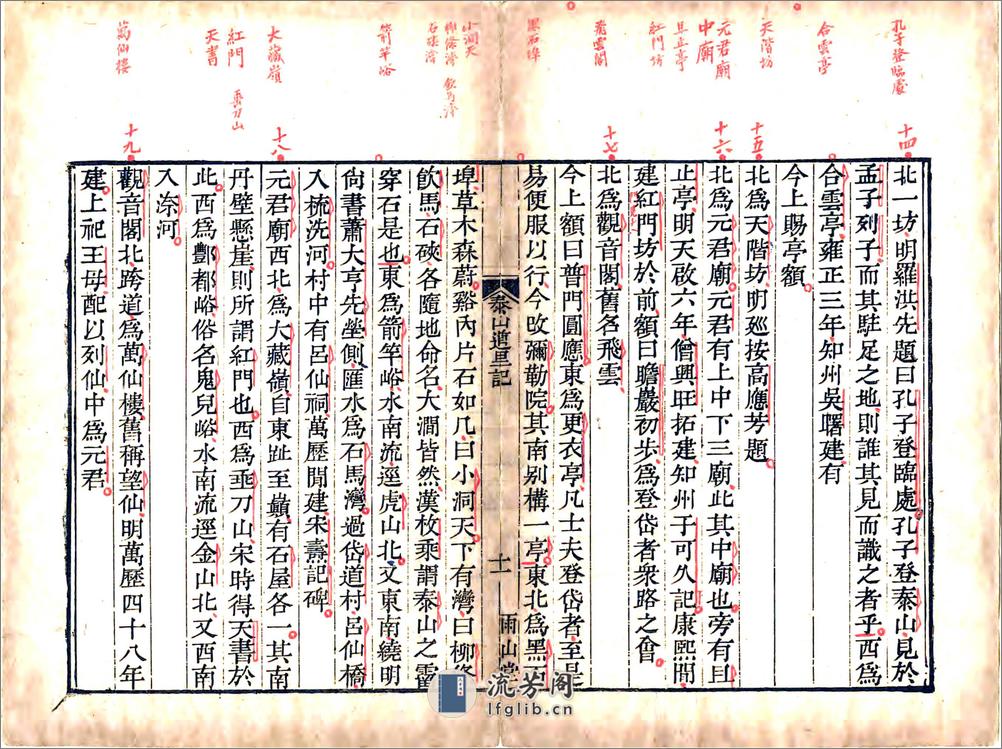 孔子登臨處
合雲亭
天階坊
元君廟
中廟
且止亭
紅門坊
飛雲閣
黑石埠
小洞天
柳條灣 飲馬灣
石硤灣
箭竿峪
大藏嶺
紅門 垂刀山
天書
萬仙樓
十四
十五
十六
十七
十八
十九
北一坊明羅洪先題曰孔子登臨處孔子登泰山見於
孟子列子而其駐足之地則誰其見而識之者乎西爲
合雲亭雍正三年知州吳曙建有
今上賜亭額
北爲天階坊明廵按高應芳題
北爲元君廟元君有上中下三廟此其中廟也旁有且
止亭明天啟六年僧興旺拓建知州于可久記康熙間
建紅門坊於前額曰瞻巖初步爲登岱者衆路之會
北爲觀音閣舊名飛雲
今上額曰普門圓應東爲更衣亭凡士夫登岱者至是
易便服以行今改彌勒院其南别構一亭東北爲黑石
泰山道里記
十一
雨山堂
埠草木森蔚谿內片石如几曰小洞天下有灣曰柳條
飲馬石硤各隨地命名大澗皆然漢枚乘謂泰山之霤
穿石是也東爲箭竿峪水南流逕虎山北又東南繞明
尙書蕭大亨先塋側匯水爲石馬灣過岱道村呂仙橋
入梳洗河村中有呂仙祠萬歷間建宋燾記碑
元君廟西北爲大藏嶺自東趾至巔有石屋各一其南
丹壁懸崖則所謂紅門也西爲垂刀山宋時得天書於
此西爲酆都峪俗名鬼兒峪水南流逕金山北又西南
入㴉河
觀音閣北跨道爲萬仙樓舊稱望仙明萬歷四十八年
建上祀王母配以列仙中爲元君
流芳阁
lfglib.cn